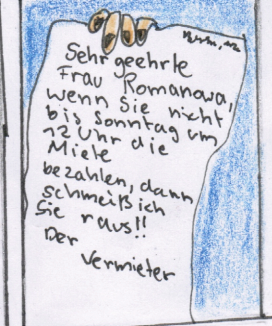 Sehr geehrte
Frau Romanowa,
wenn Sie nicht
bis Sonntag um
12 Uhr die
Miete
bezahlen, dann
schmeiß ich
Sie raus!!
Der
Vermieter